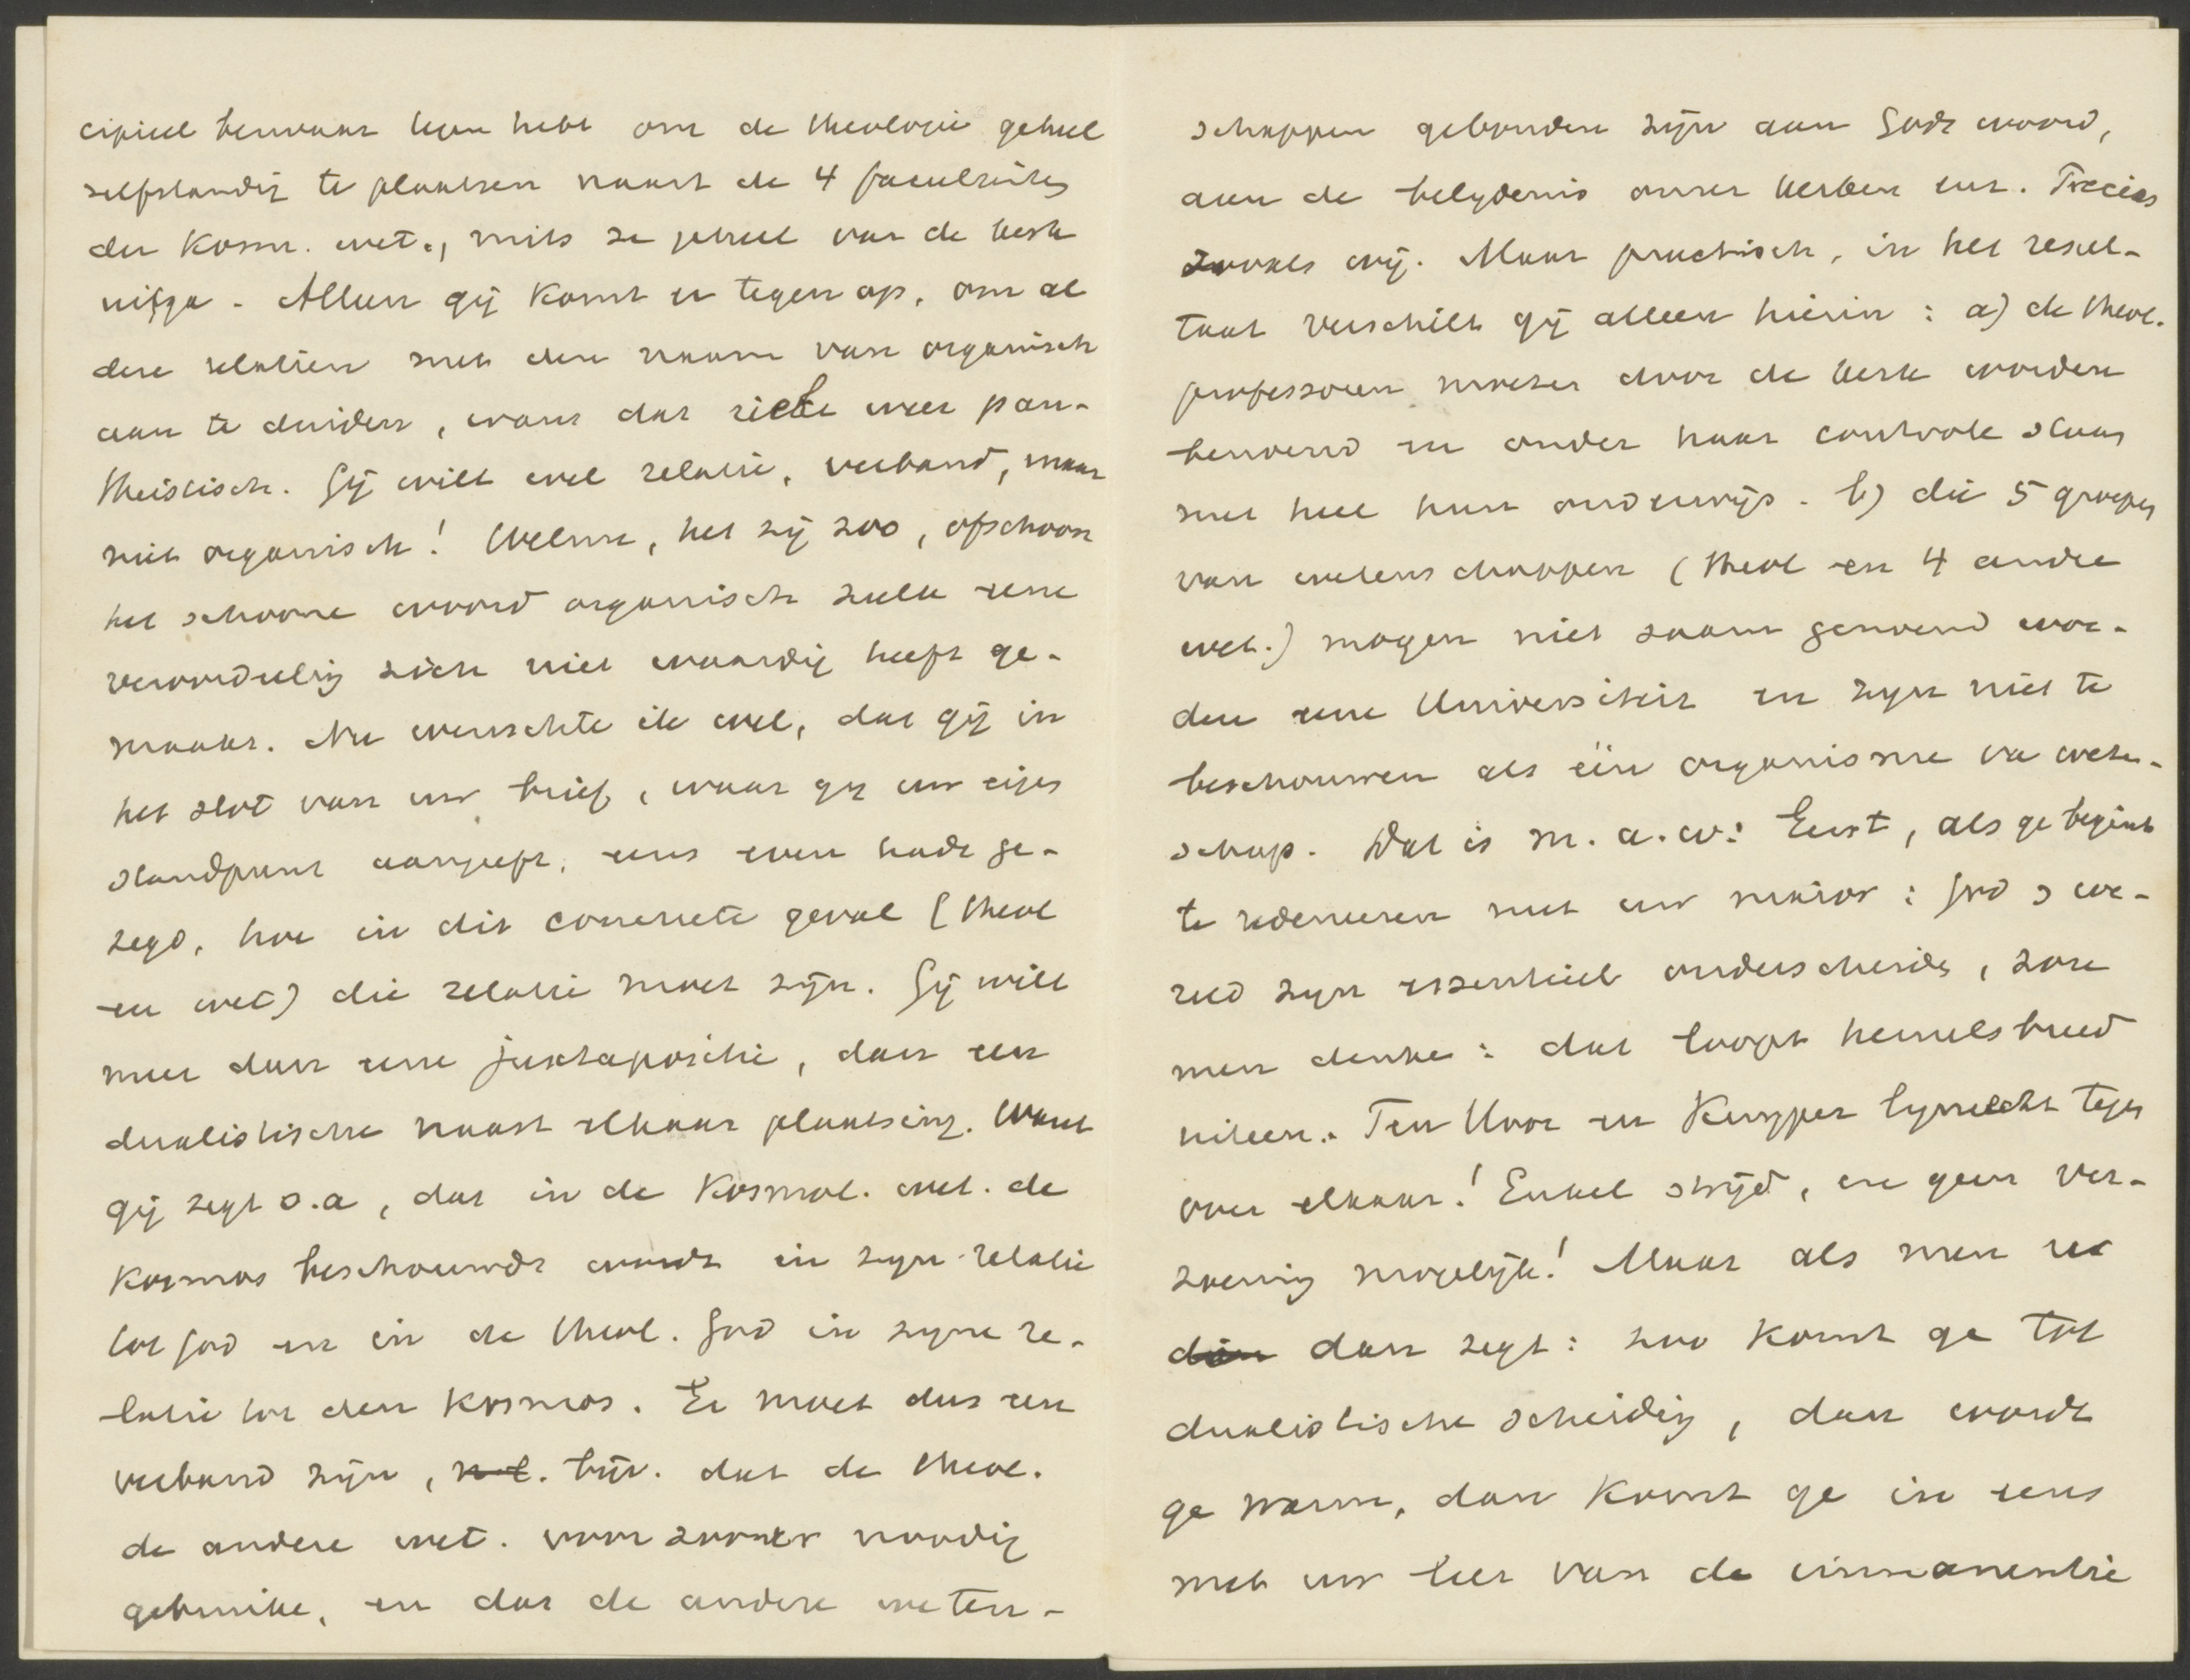 cipieel bezwaar tegen hebt om de theologie geheel
zelfstandig te plaatsen naast de 4 faculteiten
der kosm. wet., mits ze geheel van de kerk
uitga. Alleen gij komt er tegen op, om al
deze relatien met den naam van organisch
aan te duiden, want dat riekt weer pan-
theistisch. Gij wilt wel relatie, verband, maar
niet organisch! Welnu, het zij zoo, ofschoon
het schoone woord organisch zulk eene
veroordeeling zich niet waardig heeft ge-
maakt. Nu wenschte ik wel, dat gij in
het slot van uw brief, waar gij uw eigen
standpunt aangeeft, eens even hadt ge-
zegd, hoe in dit concrete geval (theol
en wet) die relatie moet zijn. Gij wilt
meer dan eene juxtapositie, dan een
dualistische naast elkaar plaatsing. Want
gij zegt o.a, dat in de Kosmol. wet. de
Kosmos beschouwd wordt in zijn relatie
tot God en in de theol. God in zijne re-
latie tot den Kosmos. Er moet dus een
verband zijn, n.l. bijv. dat de theol.
de andere wet. voor zoover noodig
gebruike, en dat de andere weten-
schappen gebonden zijn aan Gods woord,
aan de belijdenis onzer kerken enz. Precies
zooals wij. Maar practisch, in het resul-
taat verschilt gij alleen hierin: a) de theol.
professoren moeten door de kerk worden
benoemd en onder haar controle staan
met heel hun onderwijs. b) die 5 groepen
van wetenschappen (theol en 4 andre
wet.) mogen niet saam genoemd wor-
den eene Universiteit en zijn niet te
beschouwen als één organisme van weten-
schap. Dat is m.a.w: Eerst, als ge begint
te redeneeren met uw maior: God & we-
reld zijn essentieel onderscheiden, zou
men denken: dat loopt hemelsbreed
uiteen. Ten Hoor en Kuyper lijnrecht tegen
over elkaar! Enkel strijd, en geen ver-
zoening mogelijk! Maar als men u
dan dan zegt: zoo komt ge tot
dualistische scheiding, dan wordt
ge warm, dan komt ge in eens
met uw leer van de immanentie